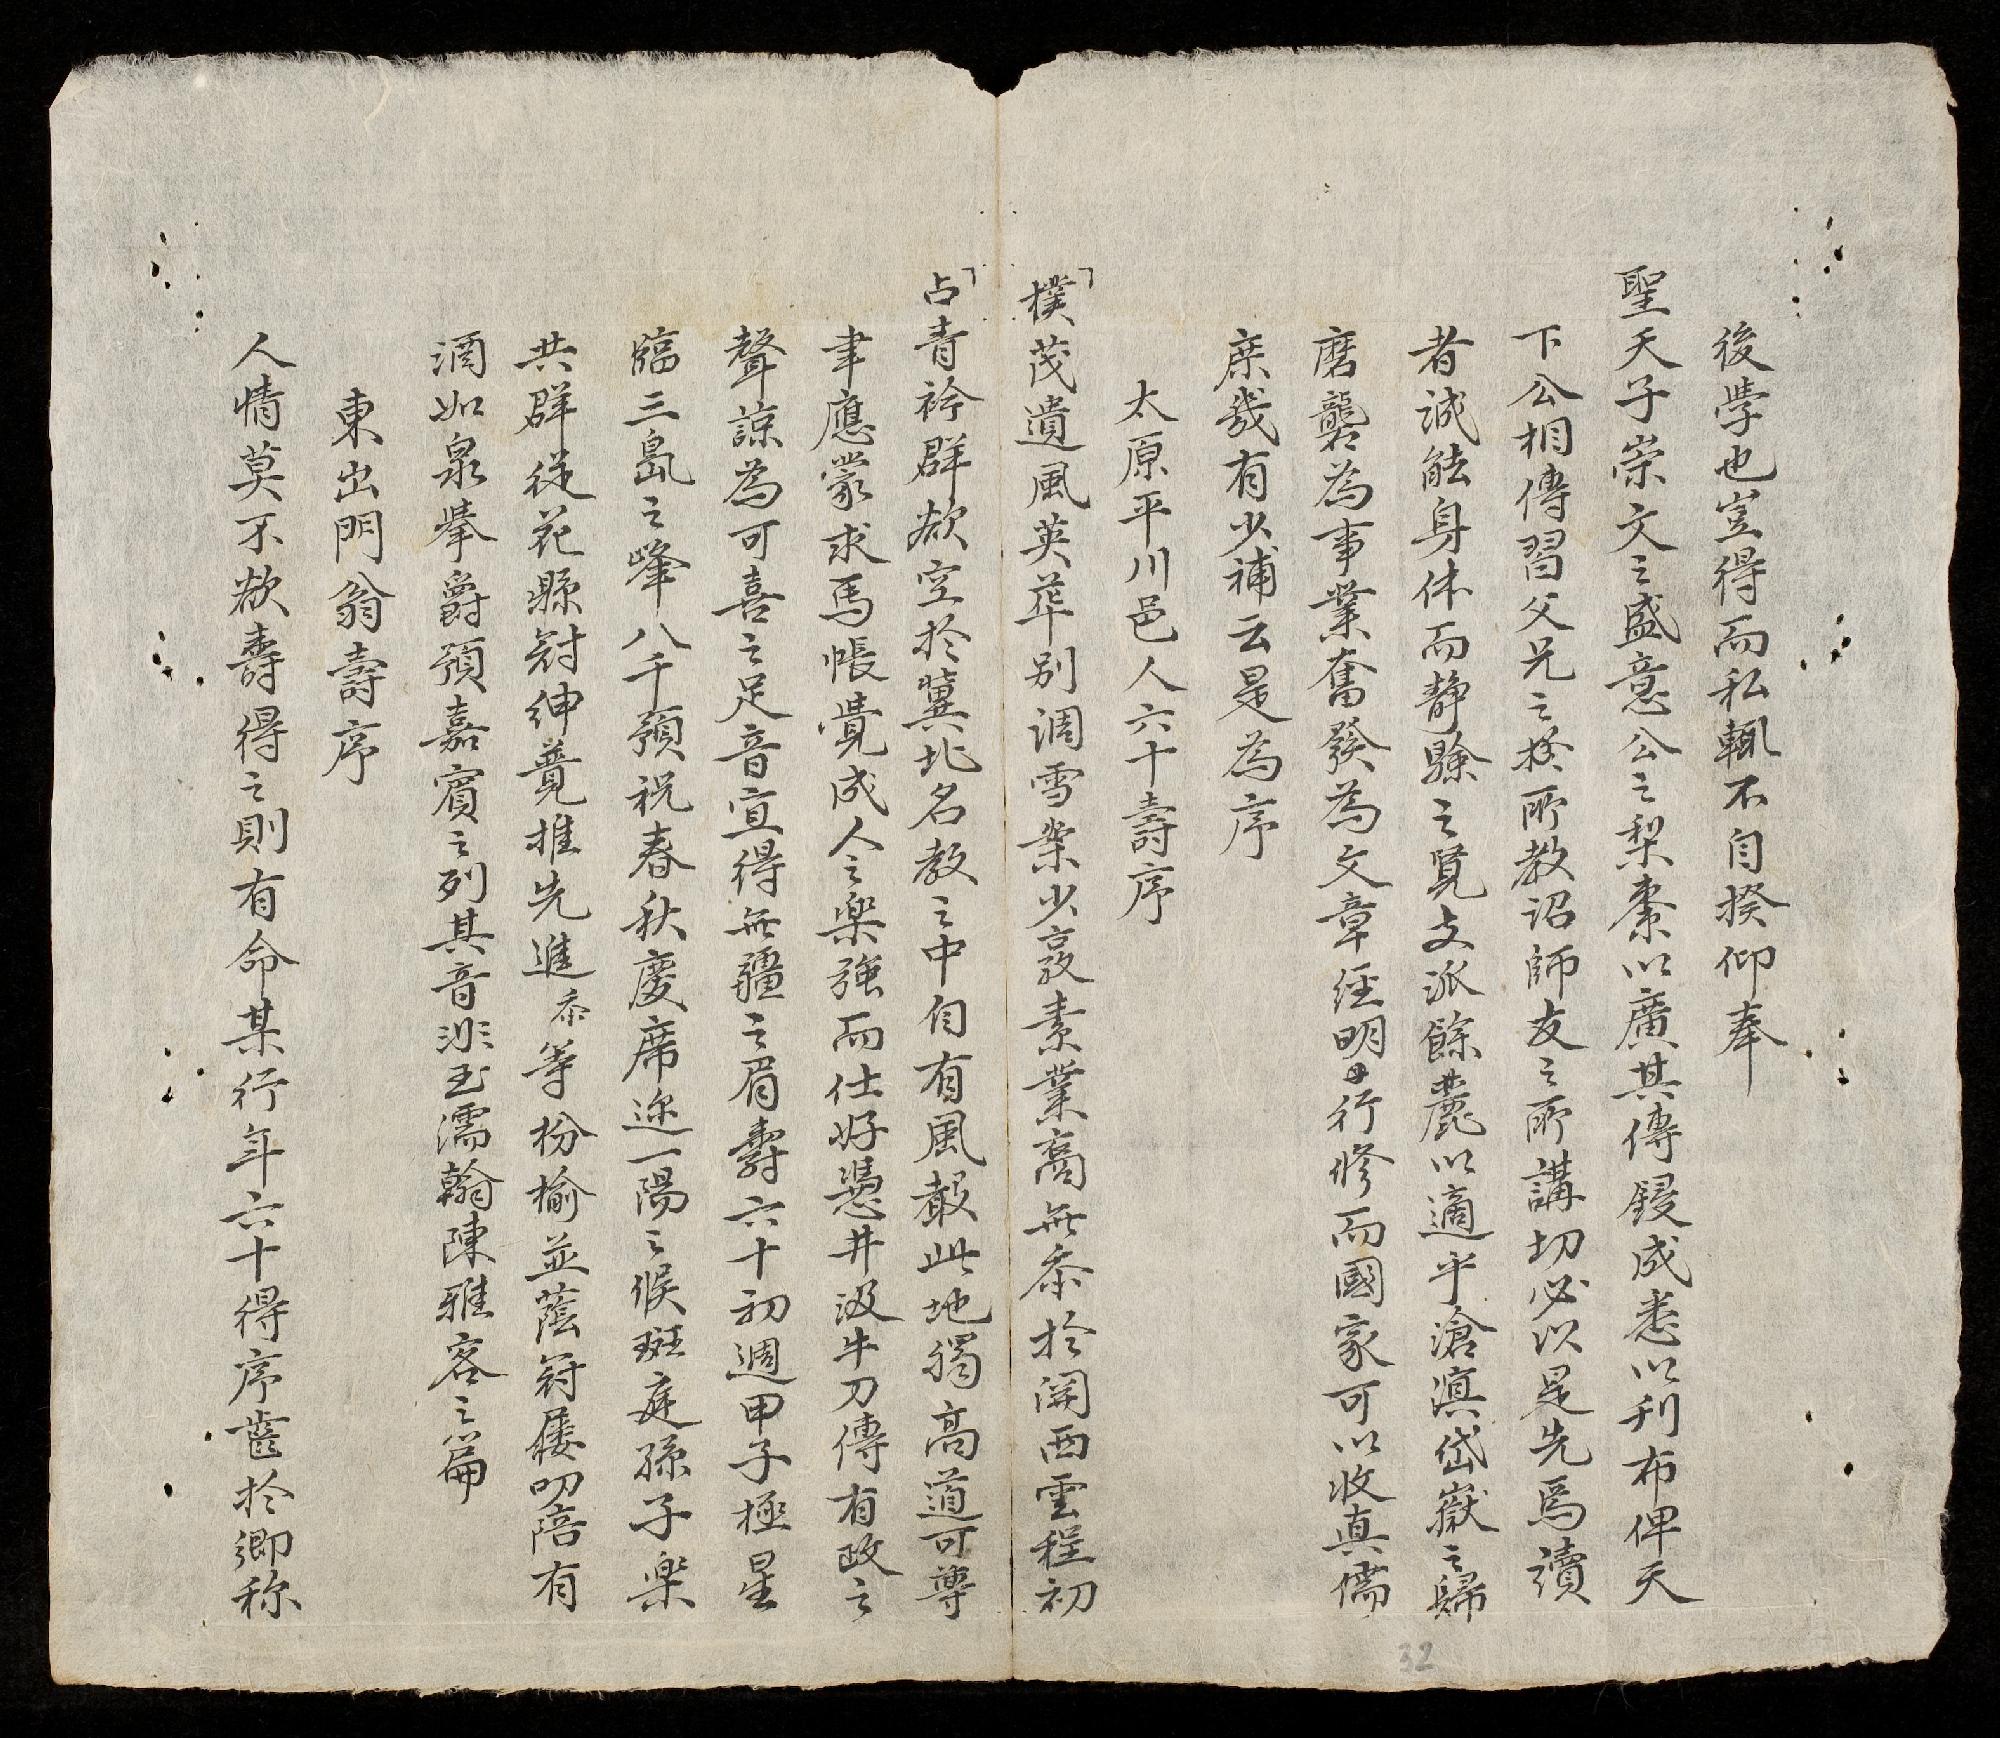 後學也豈得而私輒不自揆仰奉
聖天子崇文之盛意公之梨棗以廣其傳鋟成悉以刋布俾天
下公相傳習父兄之𠩄教詔師友之所講切必以是先焉讀
者誠能身体而靜驗之覽支派餘麓以適乎滄溟岱嶽之歸
磨礱為事業奮發為文章経明行修而國家可以收真儒
庶幾有少補云是為序
太原平川邑人六十壽序
樸茂遺風英華別調雪案少敦素業高無忝於関西雲程初
占青衿群欲空於冀北名教之中自有風聲此地獨高道可尊
聿應蒙求馬帳覺成人之楽強而仕好憑井汲牛刀傳有政之
聲諒為可喜之足音宜得無疆之眉壽六十初週甲子極星
臨三島之峰八千預祝春秋慶席迎一陽之候斑庭孫子楽
共群従花縣冠紳覺推先進忝等枌榆並蔭冠屨叨陪有
酒如泉挙爵預嘉賓之列其音非玉濡翰陳雅客之篇
東出門翁壽序
人情莫不欲壽得之則有命某行年六十得序齒於鄉称